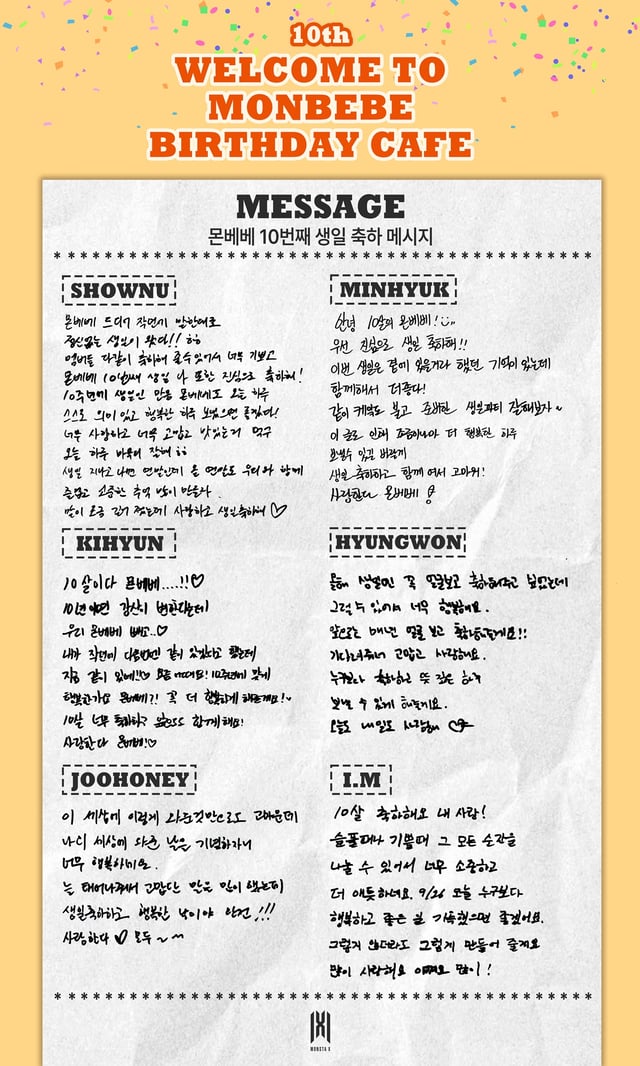 10th
WELCOME TO
MONBEBE
BIRTHDAY CAFE
MESSAGE
몬베베 10번째 생일 축하 메시지
SHOWNU
몬베베 드디어 작년에 말한대로
생일이 왔다!! ㅎㅎ
멤버들 다같이 축하해 줄수있어서 너무 기쁘고
몬베베 10번째 생일 나 또한 진심으로 축하해!
10주년에 생일인 만큼 몬베베도 오늘 하루
스스로 의미 있고 행복한 하루 보냈으면 좋겠다!
너무 사랑하고 너무 고맙고 맛있는거 먹구
오늘 하루 마무리 잘해 ㅎㅎ
생일 지나고 나면 연말인데 올 연말도 우리와 함께
즐겁고 소중한 추억 많이 만들자
말이 조금 길어 졌는데 사랑하고 생일축하해 ♡
MINHYUK
안녕 10살의 몬베베!
우선 진심으로 생일 축하해!!
이번 생일은 곁에 있을거라 했던 기억이 있는데
함께해서 더좋다!
같이 케익도 불고 준비한 생일파티 잘해보자~
이 글로 인해 조금이나마 더 행복한 하루
보낼수 있길 바라며
생일 축하하고 함께 여서 고마워!
사랑한다 몬베베
KIHYUN
10살이다 몬베베.....!!♡
10년이면 강산이 변한다는데
우리 몬베베 빼고..♡
내가 작년에 다음번엔 같이 있겠다고 했는데
지금 같이 있네!♡ 10주년에 맞게
행복한가요 몬베베?! 꼭 더 행복하게 해줄게요!~
10살 너무 축하하구 앞으로도 함께해요!
사랑한다 몬베베!♡
HYUNGWON
올해 생일엔 꼭 얼굴보고 축하해주고 싶었는데
그럴 수 있어서 너무 행복해요.
앞으로는 매년 얼굴 보고 축하해줄게요!!
기다려줘서 고맙고 사랑해요.
누구보다 축하하고 뜻 깊은 하루
보낼 수 있게 해줄게요.
오늘도 내일도 사랑해
JOOHONEY
이 세상에 이렇게 나온것만으로도 고마운데
나의 세상에 나온 날을 기념하자니
너무 행복하네요.
늘 태어나줘서 고맙단 말은 많이 했는데
생일축하하고 행복한 날이야 알건!!!
사랑한다 ♡ 모두 ~~
I.M
10살 축하해요 내 사람!
슬플때나 기쁠때 그 모든 순간을
나눌 수 있어서 너무 소중하고
더 애틋하네요. 9/26 오늘 누구보다
행복하고 좋은 일 가득했으면 좋겠어요.
그렇지 않더라도 그렇게 만들어 줄게요
많이 사랑해요 아껴요 많이!
MONSTA X